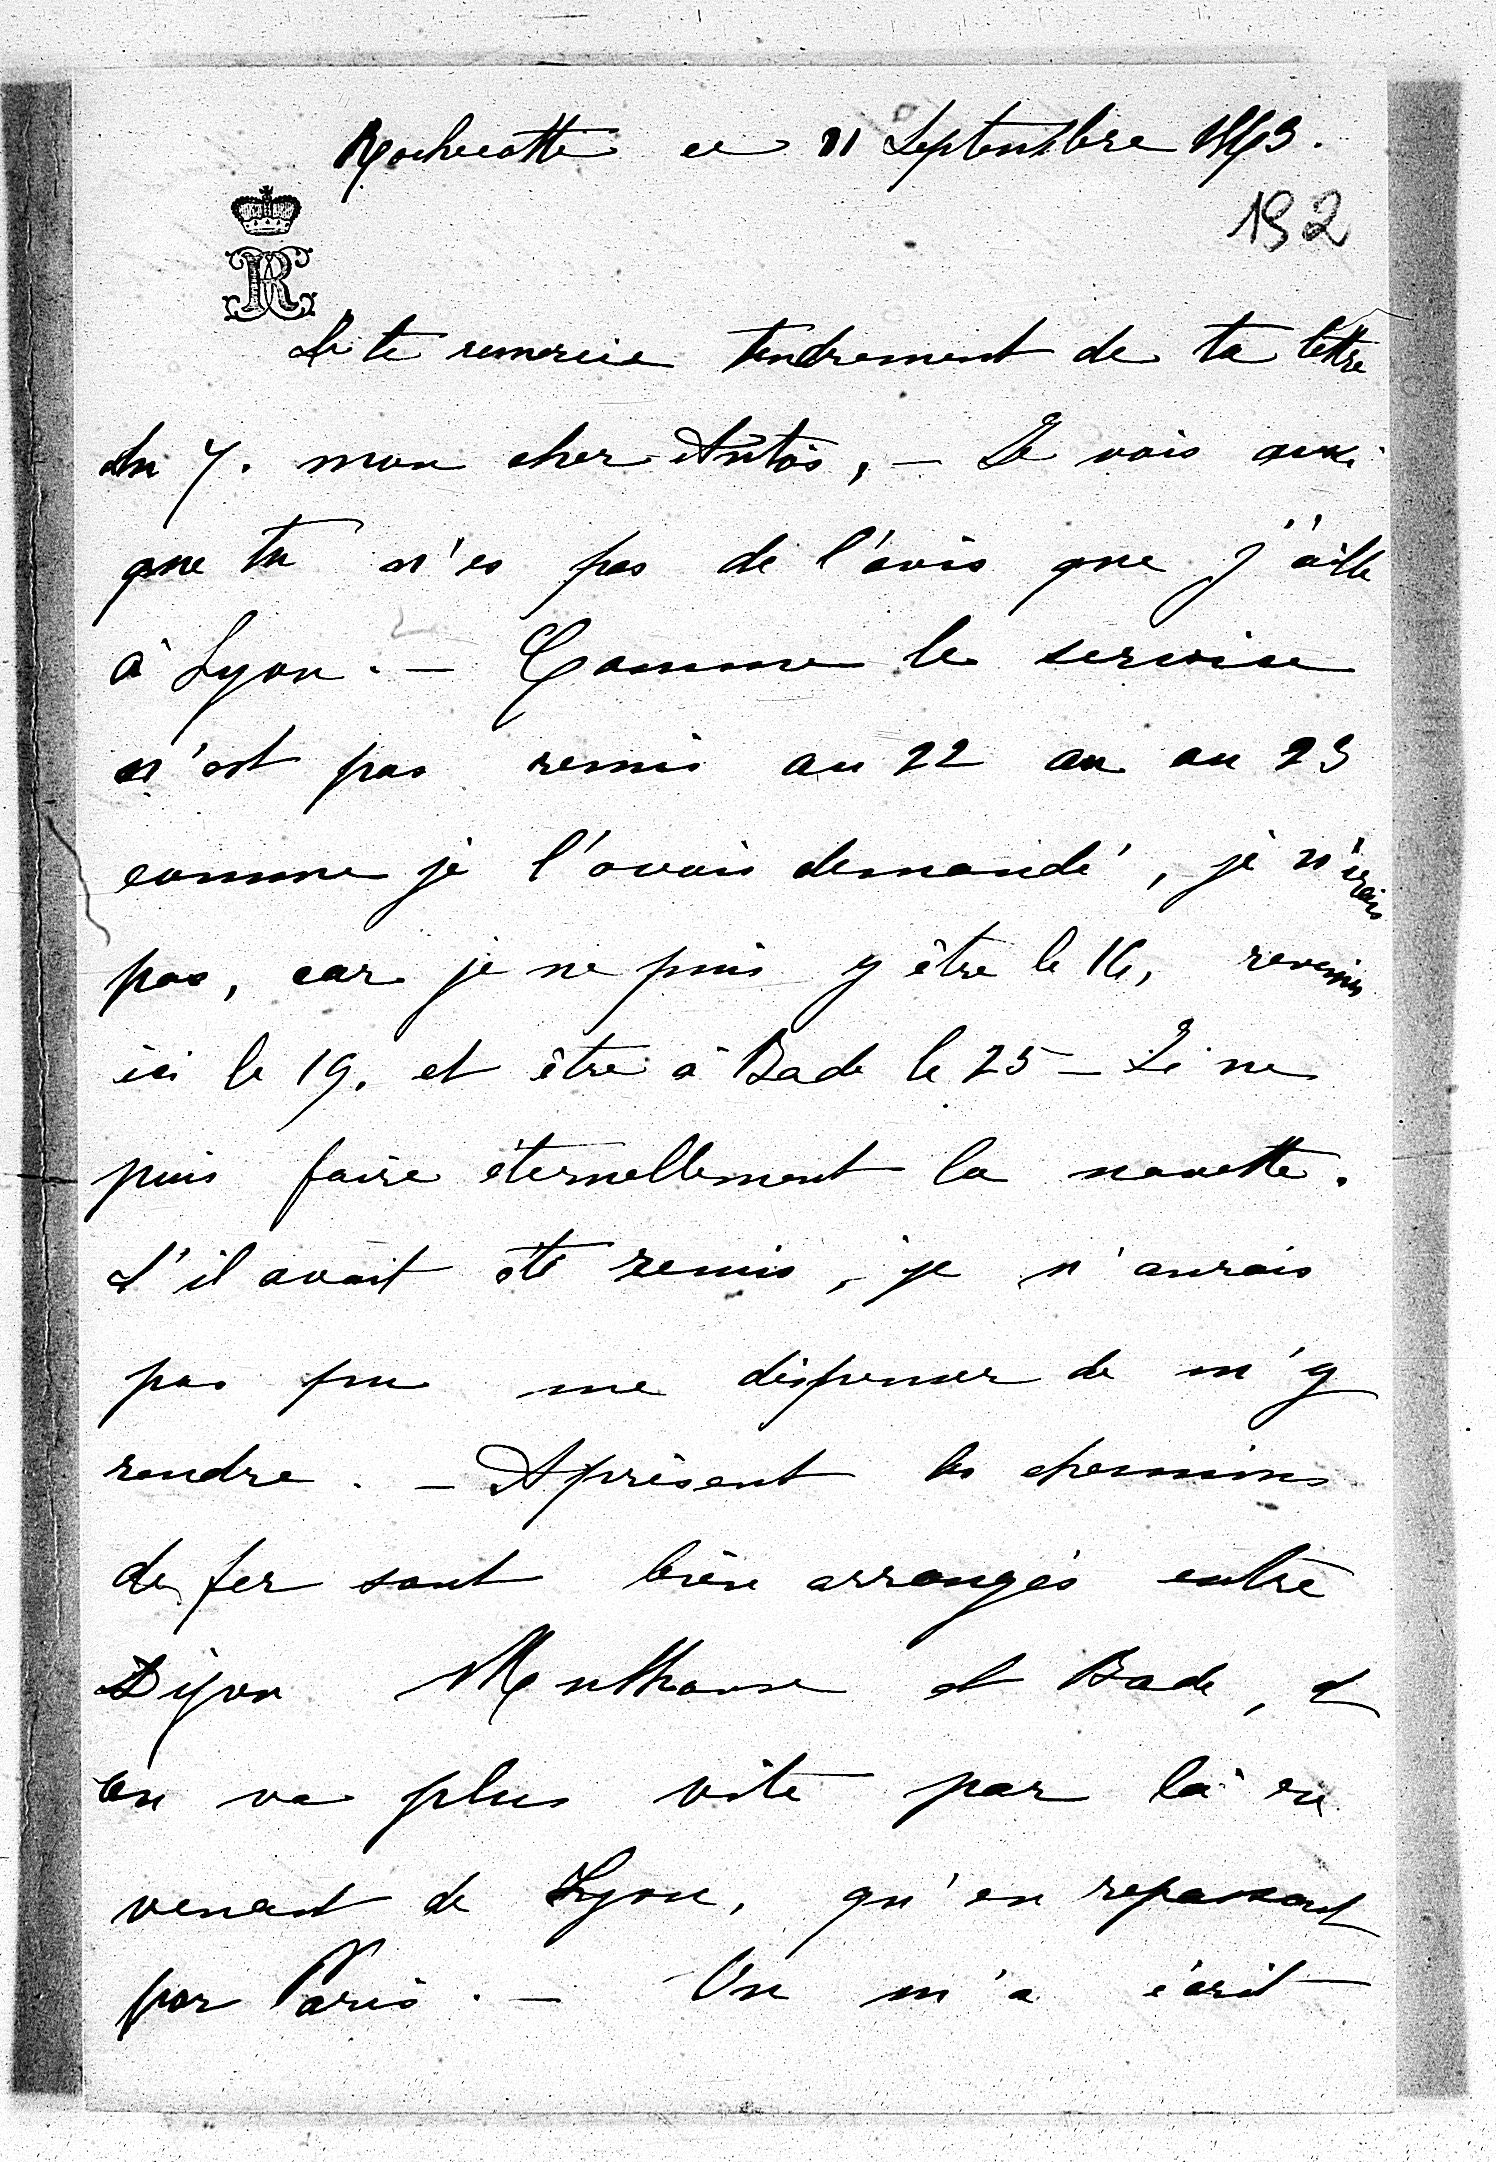 Rochecotte ce 11 Septembre 1863.
192
R
Je te remercie tendrement de ta lettre
du 7. mon cher Antos, – Je vois aussi
que tu n'es pas de l'avis que j'aille
à Lyon. – Comme le service
n'est pas remis au 22 ou au 23
comme je l'avais demandé, je n'irais
pas, car je ne puis y être le 16, revenir
ici le 19. et être à Bade le 25 – Je ne
puis faire éternellement la navette.
S'il avait été remis, je n'aurais
pas pu me dispenser de m'y
rendre. – Aprésent les chemins
de fer sont bien arrangés entre
Dijon Mulhouse et Bade, et
on va plus vite par là en
venant de Lyon, qu'en repassant
par Paris. – On m'a écrit